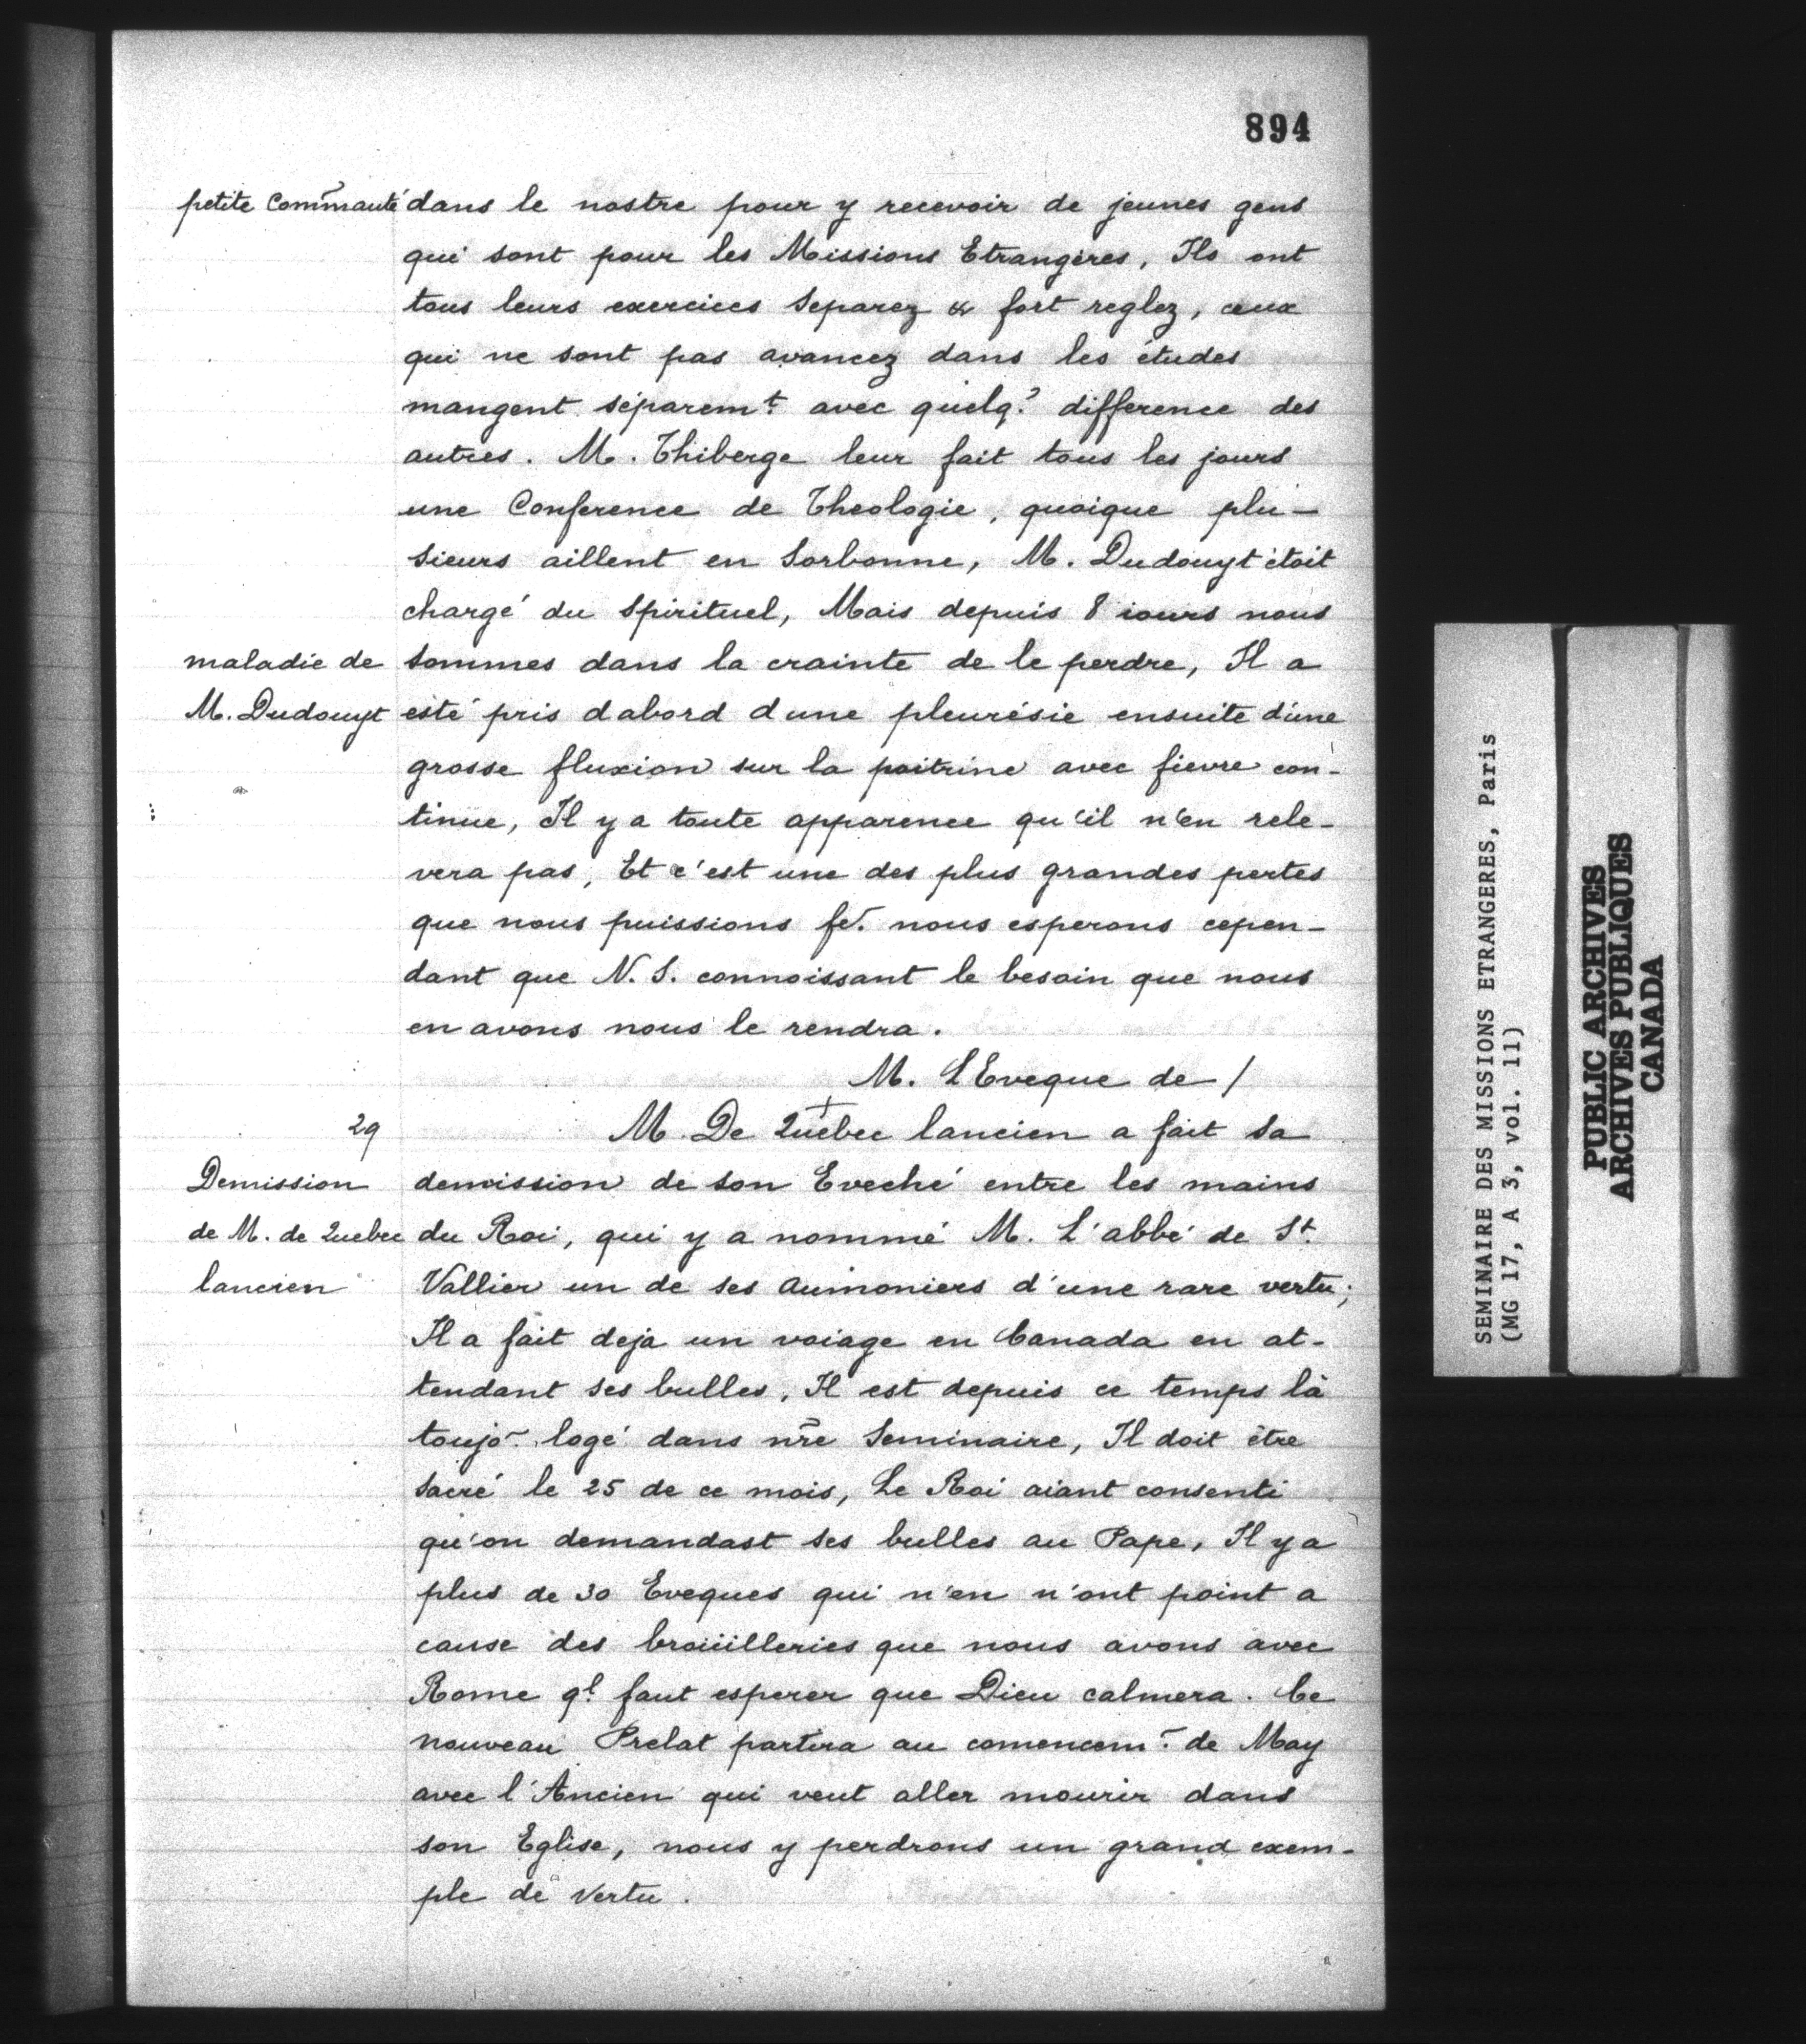 894
petite Commauté dans le nostre pour y recevoir de jeunes gens
qui sont pour les Missions Etrangères, Ils ont
tous leurs exercices separez & fort reglez, ceux
qui ne sont pas avancez dans les études
mangent séparemt avec quelq? difference des
autres. M. Thiberge leur fait tous les jours
une Conference de Theologie, quoique plu-
sieurs aillent en Sorbonne, M. Dudouyt étoit
chargé du Spirituel, Mais depuis 8 iours nous
maladie de sommes dans la crainte de le perdre, Il a
M. Dudouyt esté pris dabord dune pleurésie ensuite d'une
grosse fluxion sur la poitrine avec fievre con-
tinue, Il y a toute apparence qu'il n'en rele-
vera pas, Et c'est une des plus grandes pertes
que nous puissions fe. nous esperons cepen-
dant que N. S. connoissant le besoin que nous
en avons nous le rendra.
M. L'Eveque de /
29 M. De + Quebec lancien a fait sa
Demission demission de son Eveché entre les mains
de M. de Quebec du Roi, qui y a nommé M. L'abbé de St.
lancien Vallier un de ses aumoniers d'une rare vertu;
Il a fait deja un voiage en Canada en at-
tendant ses bulles, Il est depuis ce temps là
toujo~. logé dans nr̄e Seminaire, Il doit être
sacré le 25 de ce mois, Le Roi aiant consenti
qu'on demandast ses bulles au Pape, Il y a
plus de 30 Eveques qui n'en n'ont point a
cause des broüilleries que nous avons avec
Rome ql faut esperer que Dieu calmera. Ce
nouveau Prelat partira au comencem~. de May
avec l'Ancien qui veut aller mourir dans
son Eglise, nous y perdrons un grand exem-
ple de vertu.
SEMINAIRE DES MISSIONS ETRANGERES, Paris
(MG 17, A 3, vol. 11)
PUBLIC ARCHIVES
ARCHIVES PUBLIQUES
CANADA